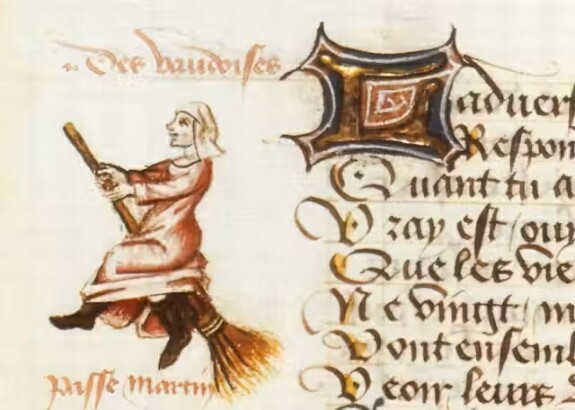 Des vaudoises
Ladvers
Respon
Quant tu a
Vray est ouy
Que les vie
Ne vingt m
Vont ensembl
Veoir leurs
passe martin